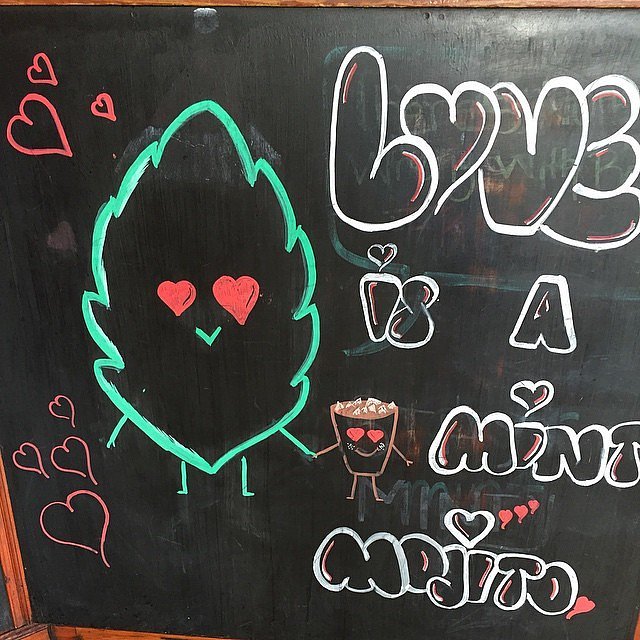 LOVE
is A
MiNT
MOjiTO